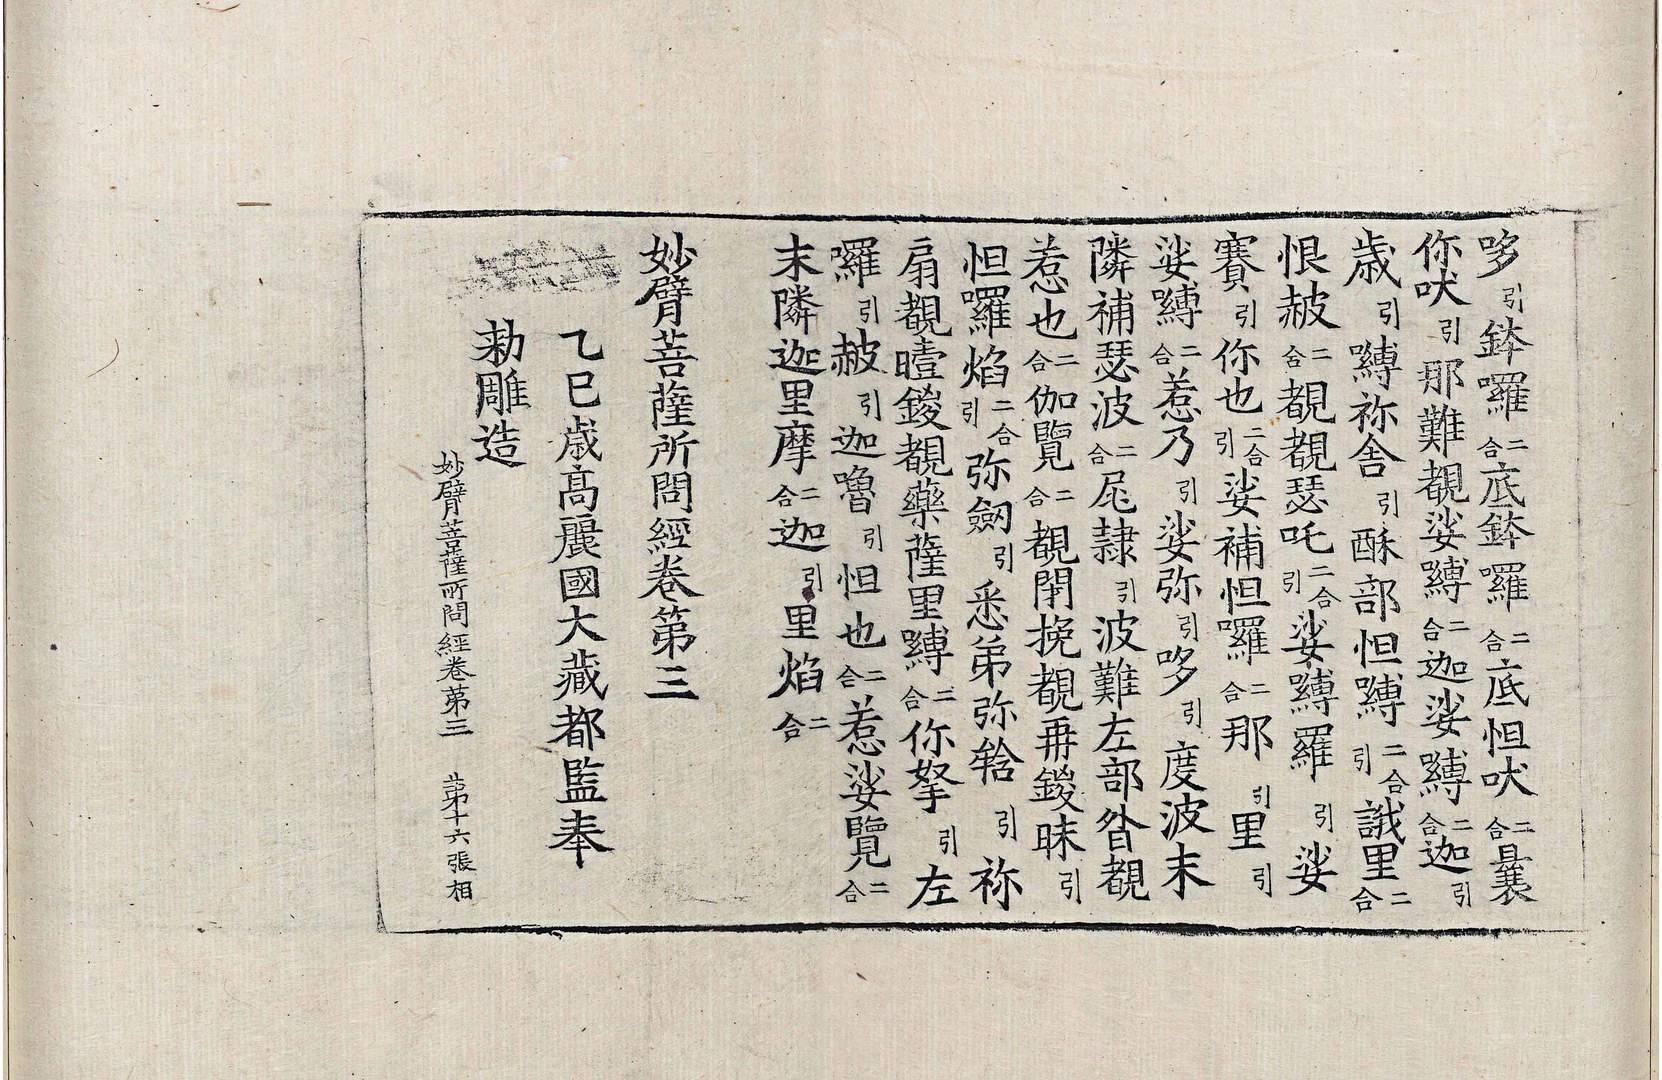 哆引鉢囉二合底鉢囉二合底怛吠二合曩
你吠引那難覩娑嚩二合迦娑嚩二合迦引
歳引嚩祢舍引酥部怛嚩二合引誐里二合
恨赦二合覩覩瑟吒二合引娑嚩羅引娑
賽引你也二合引娑補怛囉二合那引里引
娑嚩二合惹乃引娑弥引哆引度波末
隣補瑟波二合尾隷引波難左部呰覩
惹也二合伽覽二合覩閉挽覩再鑁昧引
怛囉焰二合引弥劒引悉弟弥䶎引祢
扇覩曀鑁覩藥薩里嚩二合你拏引左
囉引赦引迦嚕引怛也二合惹娑覽二合
末隣迦里摩二合迦引里焰二合
妙臂菩薩所問經卷第三
乙巳歳高麗國大藏都監奉
勑雕造
妙臂菩薩所問經卷第三 第十六張相